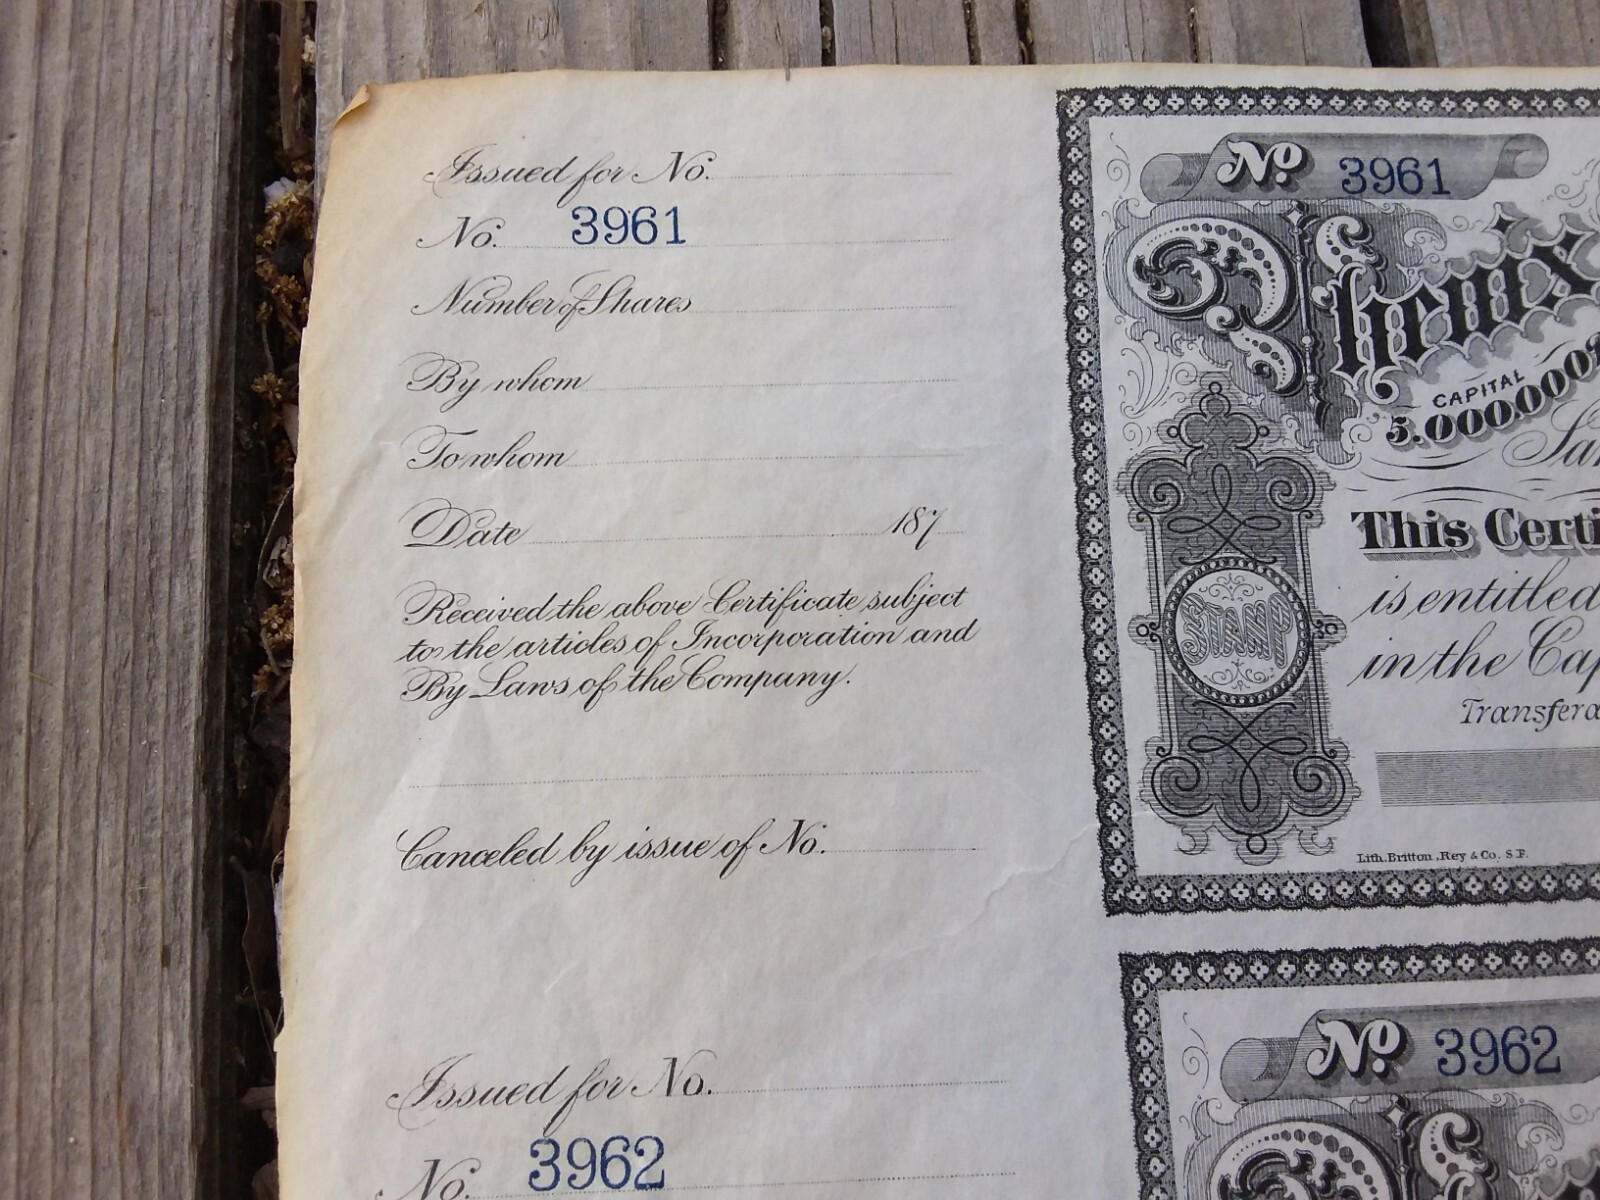 Issued for No.
No. 3961
Number of Shares
By whom
To whom
Date 187
Received the above Certificate subject
to the articles of Incorporation and
By Laws of the Company.
Canceled by issue of No.
Issued for No.
No. 3962
No 3961
Phenix
CAPITAL
5.000.000
San
This Certi
is entitled
in the Cap
Transfera
STAMP
Lith. Britton, Rey & Co. S.F.
No 3962